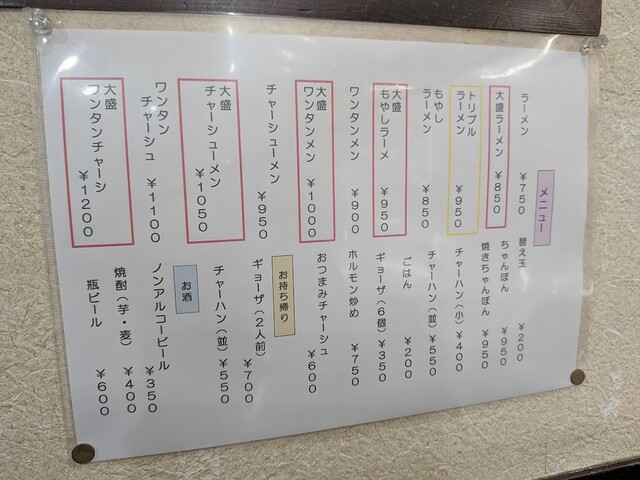 メニュー
ラーメン ￥７５０
大盛ラーメン ￥８５０
トリプル
ラーメン ￥９５０
もやし
ラーメン ￥８５０
大盛
もやしラーメ ￥９５０
ワンタンメン ￥９００
大盛
ワンタンメン ￥１０００
チャーシューメン ￥９５０
大盛
チャーシューメン ￥１０５０
ワンタン
チャーシュ ￥１１００
大盛
ワンタンチャーシ ￥１２００
替え玉 ￥２００
ちゃんぽん ￥９５０
焼きちゃんぽん ￥９５０
チャーハン（小） ￥４００
チャーハン（並） ￥５５０
ごはん ￥２００
ギョーザ（６個） ￥３５０
ホルモン炒め ￥７５０
おつまみチャーシュ ￥６００
お持ち帰り
ギョーザ（２人前） ￥７００
チャーハン（並） ￥５５０
お酒
ノンアルコービール ￥３５０
焼酎（芋・麦） ￥４００
瓶ビール ￥６００